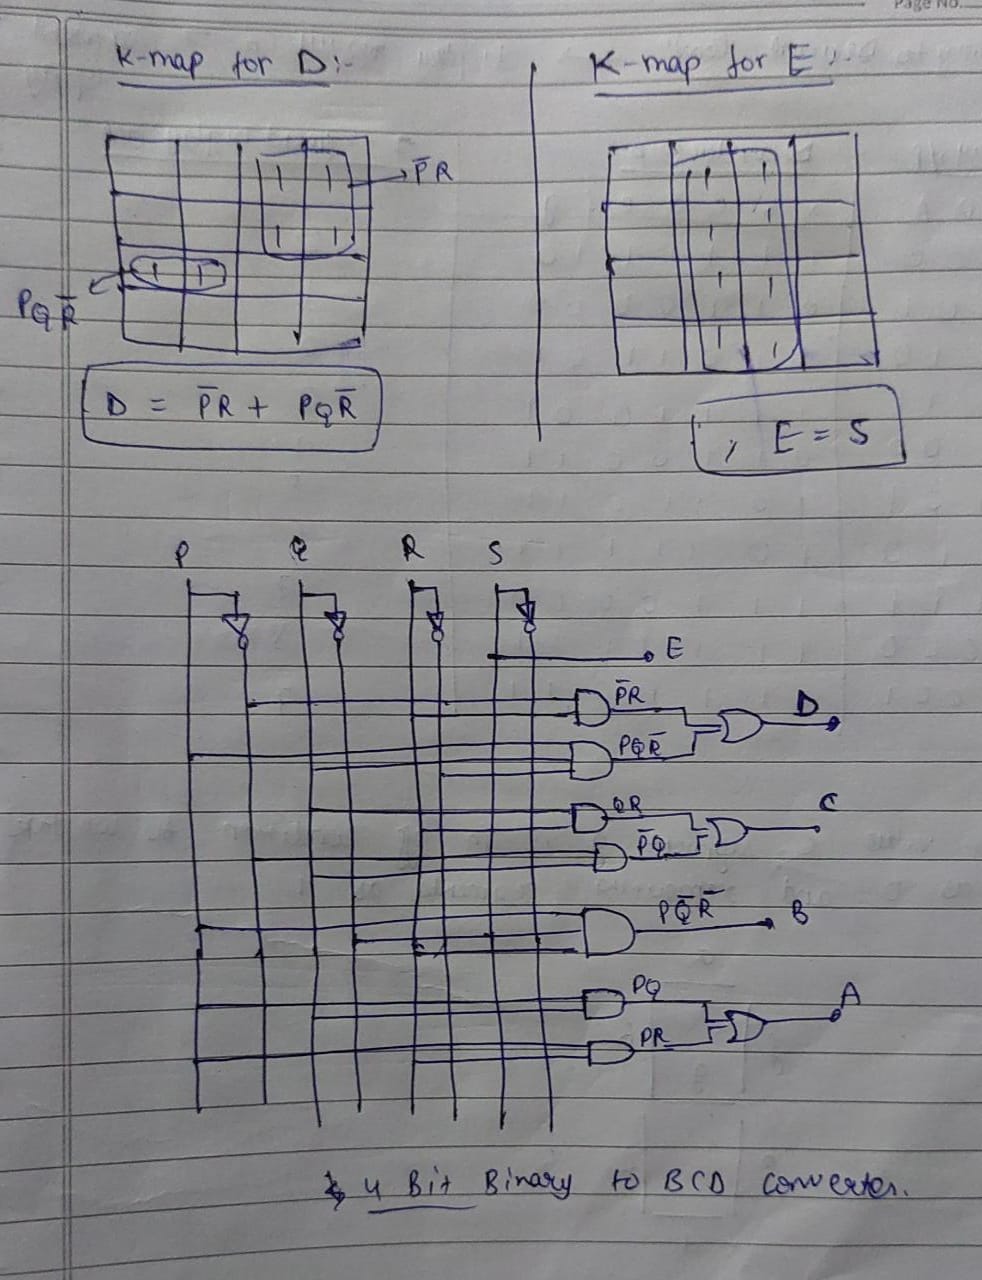 Page No.
K-map for D:-
K-map for E:-
1 1
1 1
1 1
P̅R
PQR̅
D = P̅R + PQR̅
1 1
1 1
1 1
1 1
, E = S
P Q R S
E
P̅R
D
PQR̅
QR
C
P̅Q
PQ̅R̅
B
PQ
A
PR
4 Bit Binary to BCD converter.